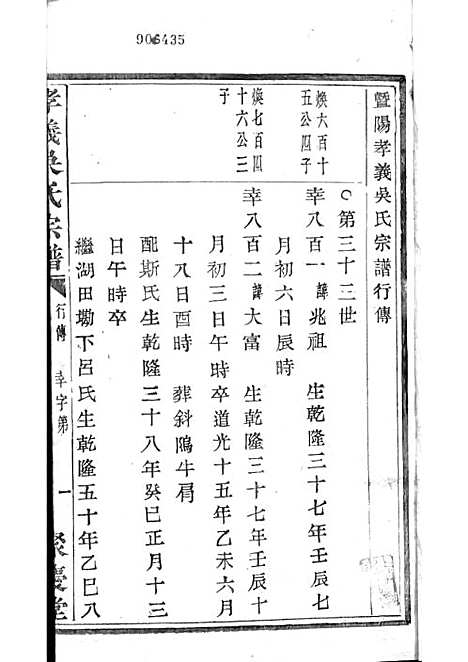 906435
暨陽孝義吳氏宗譜行傳
○第三十三世
煥六百十
五公四子
幸八百一 諱兆祖 生乾隆三十七年壬辰七
月初六日辰時
煥七百四
十六公三
子
幸八百二 諱大富 生乾隆三十七年壬辰十
月初三日午時卒道光十五年乙未六月
十八日酉時 葬斜隝牛肩
配斯氏生乾隆三十八年癸巳正月十三
日午時卒
繼湖田塸下呂氏生乾隆五十年乙巳八
孝義吳氏宗譜
行傳 幸字第 一
聚慶堂